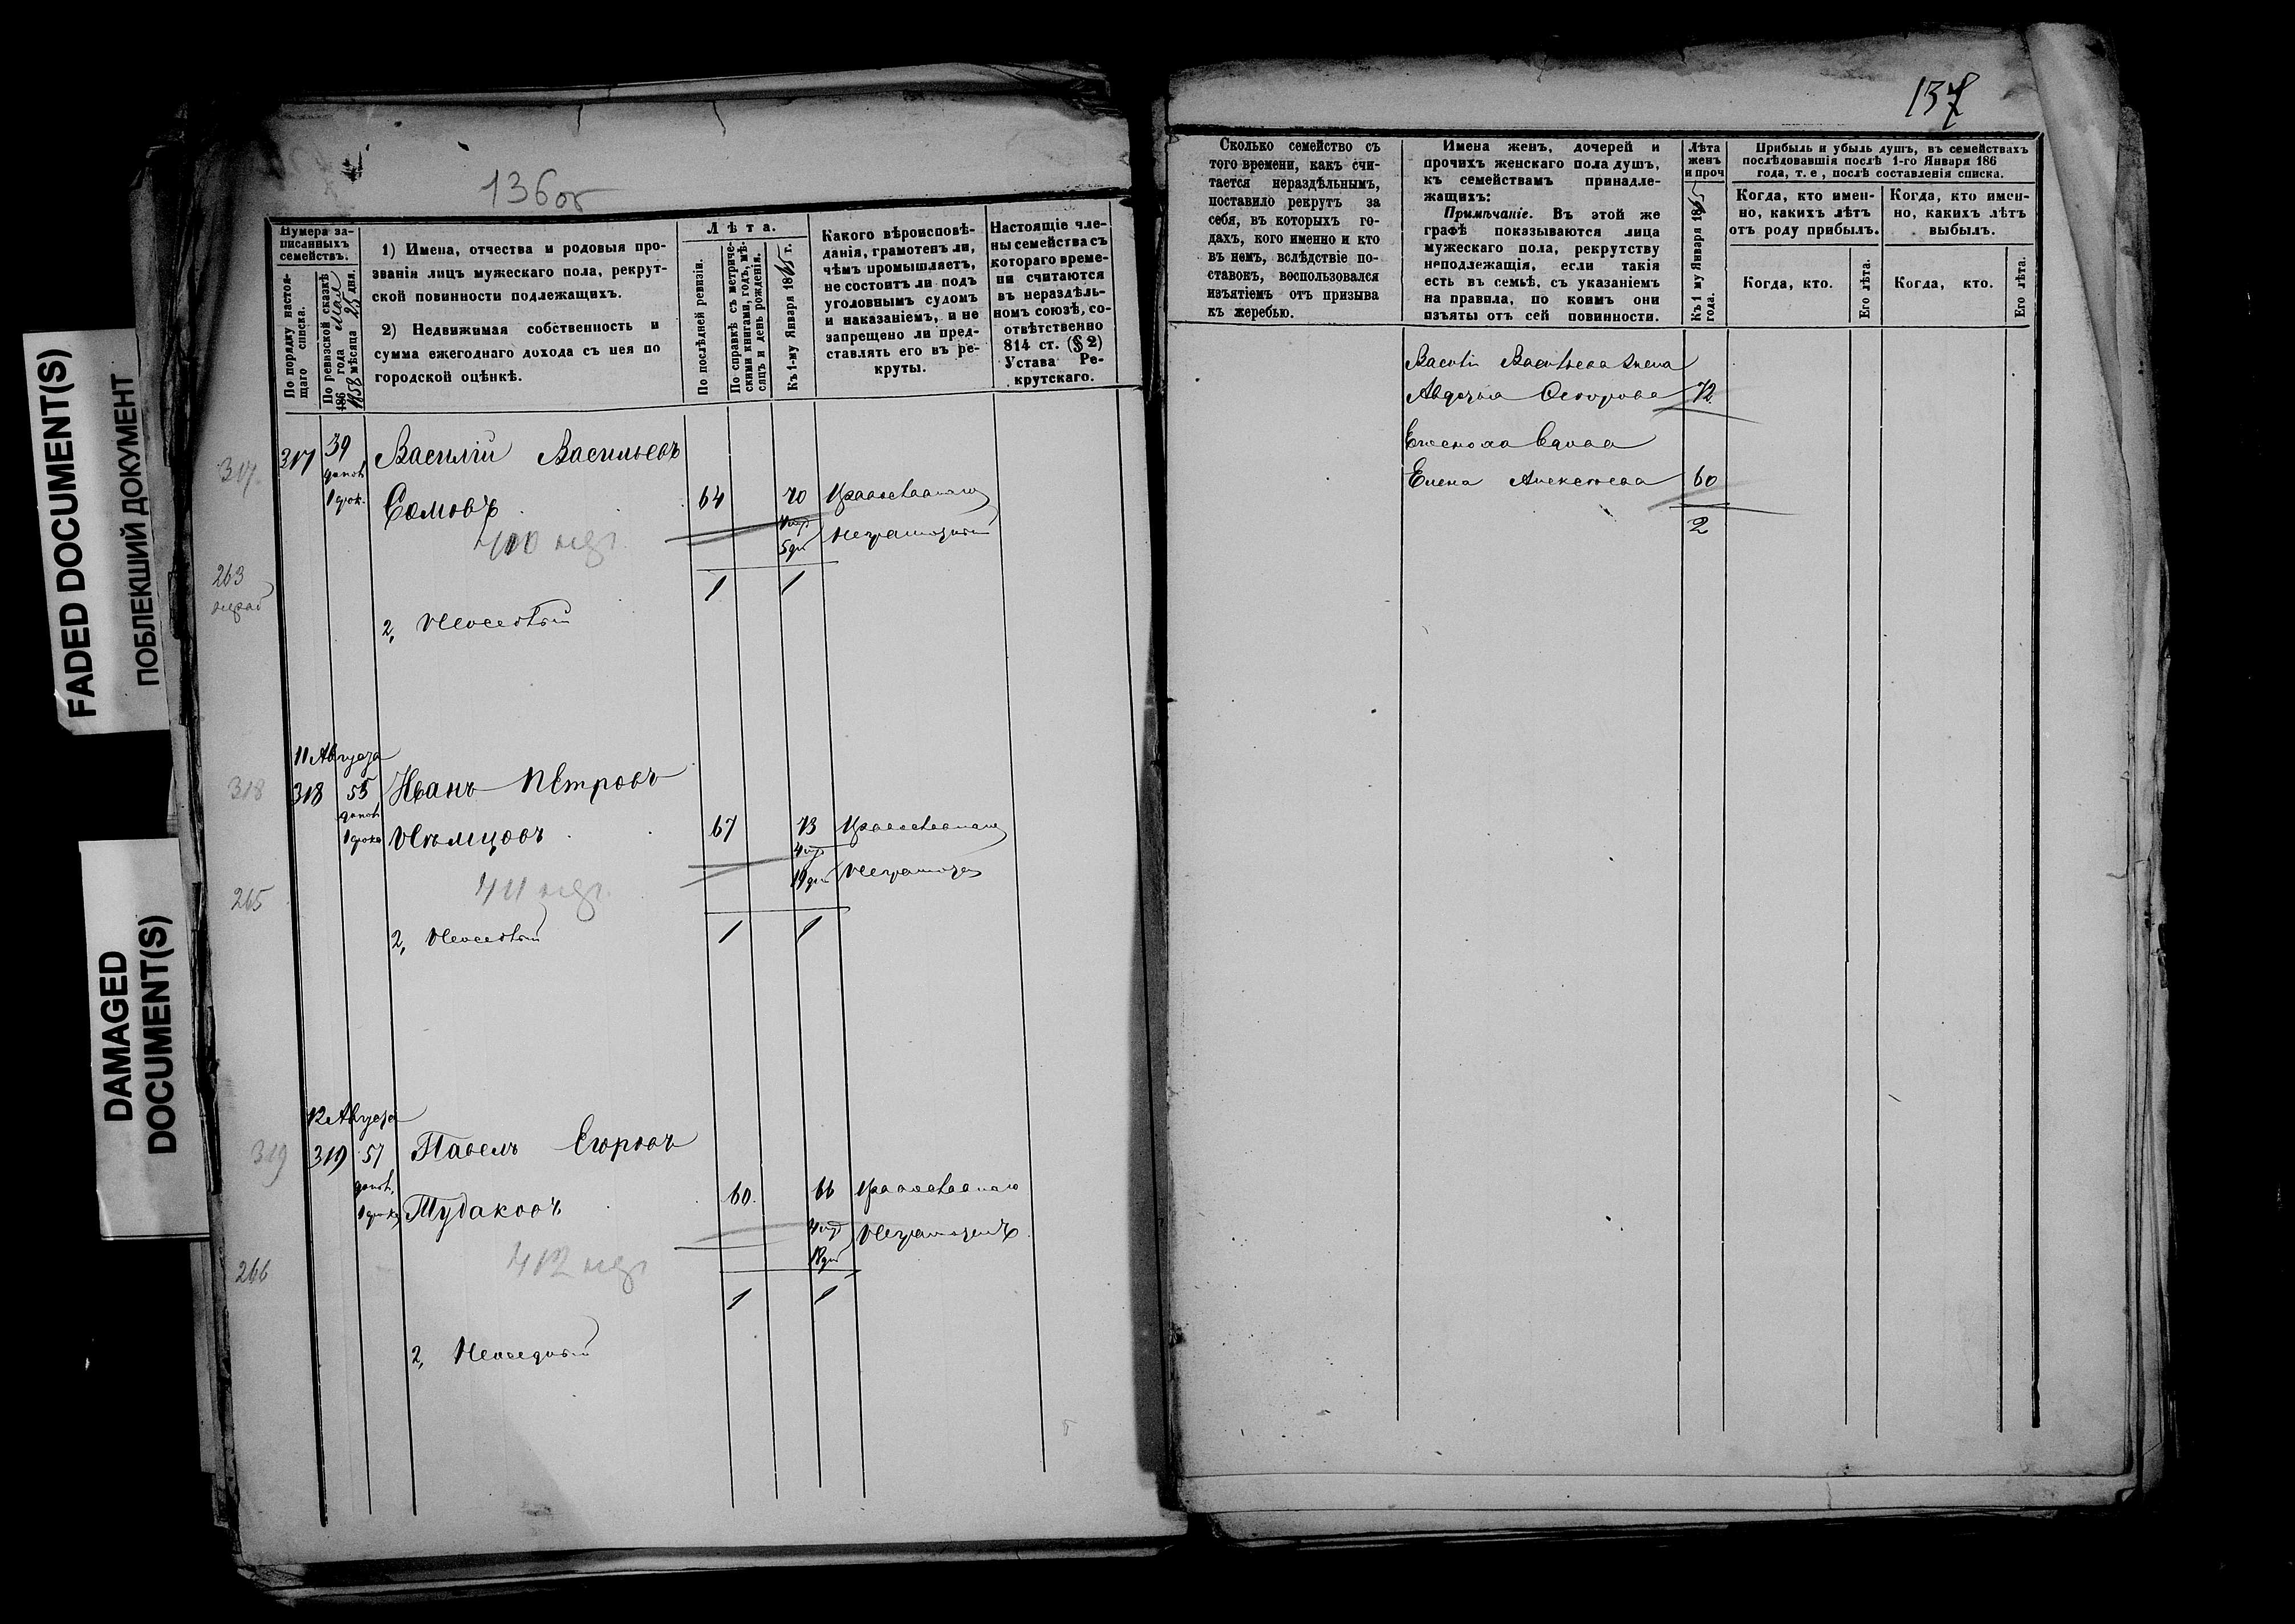 FADED DOCUMENT(S)
ПОБЛЕКШИЙ ДОКУМЕНТ
DAMAGED
DOCUMENT(S)
136об
Нумера за-
писанныхъ
семействъ.
По порядку настоя-
щаго списка.
По ревизской сказкѣ
186 года Мая
1858 мѣсяца 25 дня.
1) Имена, отчества и родовыя про-
званія лицъ мужескаго пола, рекрут-
ской повинности подлежащихъ.
2) Недвижимая собственность и
сумма ежегоднаго дохода съ нея по
городской оцѣнкѣ.
Лѣта.
По послѣдней ревизіи.
По справкѣ съ метриче-
скими книгами, годъ, мѣ-
сяцъ и день рожденія.
Къ 1-му Января 1865 г.
Какого вѣроисповѣ-
данія, грамотенъ ли,
чѣмъ промышляетъ,
не состоитъ ли подъ
уголовнымъ судомъ
и наказаніемъ, и не
запрещено ли пред-
ставлять его въ ре-
круты.
Настоящіе чле-
ны семейства съ
котораго време-
ни считаются
въ нераздѣль-
номъ союзѣ, со-
отвѣтственно
814 ст. (§ 2)
Устава Ре-
крутскаго.
317. 317 39 Василій Васильевъ
Сомовъ 64 70 Православнаго
5 дн неграмотный
263
1 1
2, Неосѣдлый
11 Августа
318 318 55 Иванъ Петровъ
Нѣмцовъ 67 73 Православнаго
19 дн Неграмотенъ
265
2, Неосѣдлый 1 1
12 Августа
319 319 57 Павелъ Егоровъ
Тудаковъ 60. 66 Православнаго
Неграмотенъ
18 дн
266
1 1
2, Неоседлый
137
Сколько семейство съ
того времени, какъ счи-
тается нераздѣльнымъ,
поставило рекрутъ за
себя, въ которыхъ го-
дахъ, кого именно и кто
въ немъ, вслѣдствіе по-
ставокъ, воспользовался
изъятіемъ отъ призыва
къ жеребью.
Имена женъ, дочерей и
прочихъ женскаго пола душъ,
къ семействамъ принадле-
жащихъ:
Примѣчаніе. Въ этой же
графѣ показываются лица
мужескаго пола, рекрутству
неподлежащія, если такія
есть въ семьѣ, съ указаніемъ
на правила, по коимъ они
изъяты отъ сей повинности.
Лѣта
женъ
и проч
Къ 1 му Января 1865
года.
Прибыль и убыль душъ, въ семействахъ
послѣдовавшія послѣ 1-го Января 186
года, т. е, послѣ составленія списка.
Когда, кто имен-
но, какихъ лѣтъ
отъ роду прибылъ.
Когда, кто имен-
но, какихъ лѣтъ
выбылъ.
Когда, кто.
Его лѣта.
Когда, кто.
Его лѣта.
Васильева жена
Авдотья 72.
Елена Алексѣева 60
2